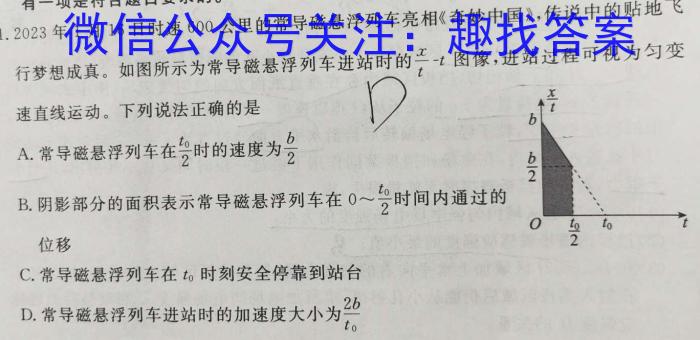 有一项是符合题目要求的。
1. 2023年 月16日时速600公里的常导磁悬浮列车亮相《奇妙中国》，传说中的贴地飞
微信公众号关注：趣找答案
行梦想成真。如图所示为常导磁悬浮列车进站时的x/t-t图像，进站过程可视为匀变
速直线运动。下列说法正确的是
D
A.常导磁悬浮列车在t₀/2时的速度为b/2
B.阴影部分的面积表示常导磁悬浮列车在0～t₀/2时间内通过的
位移
C.常导磁悬浮列车在t₀时刻安全停靠到站台
D.常导磁悬浮列车进站时的加速度大小为2b/t₀
x/t
b
b/2
O t₀/2 t₀ t